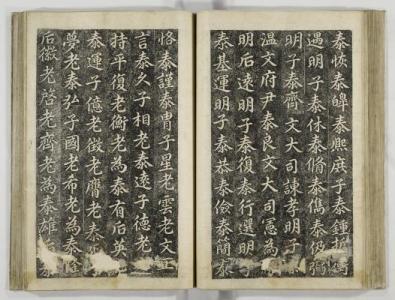 泰恢泰皥泰熙庶子泰鍾
遇明子泰休泰脩泰儁泰仍弼
明子泰齊文大司諫孝明子
温文府尹泰良文大司憲為
明后遠明子泰復泰行選明子
泰基運明子泰恭泰儉泰簡泰
恪泰謹泰胄子星老雲老文
言泰久子相老泰逵子德老
持平復老衡老為泰有后英
泰運子億老徵老膺老
夢老泰弘子國老布老為泰
后徽老啓老齊老為泰雄后泰